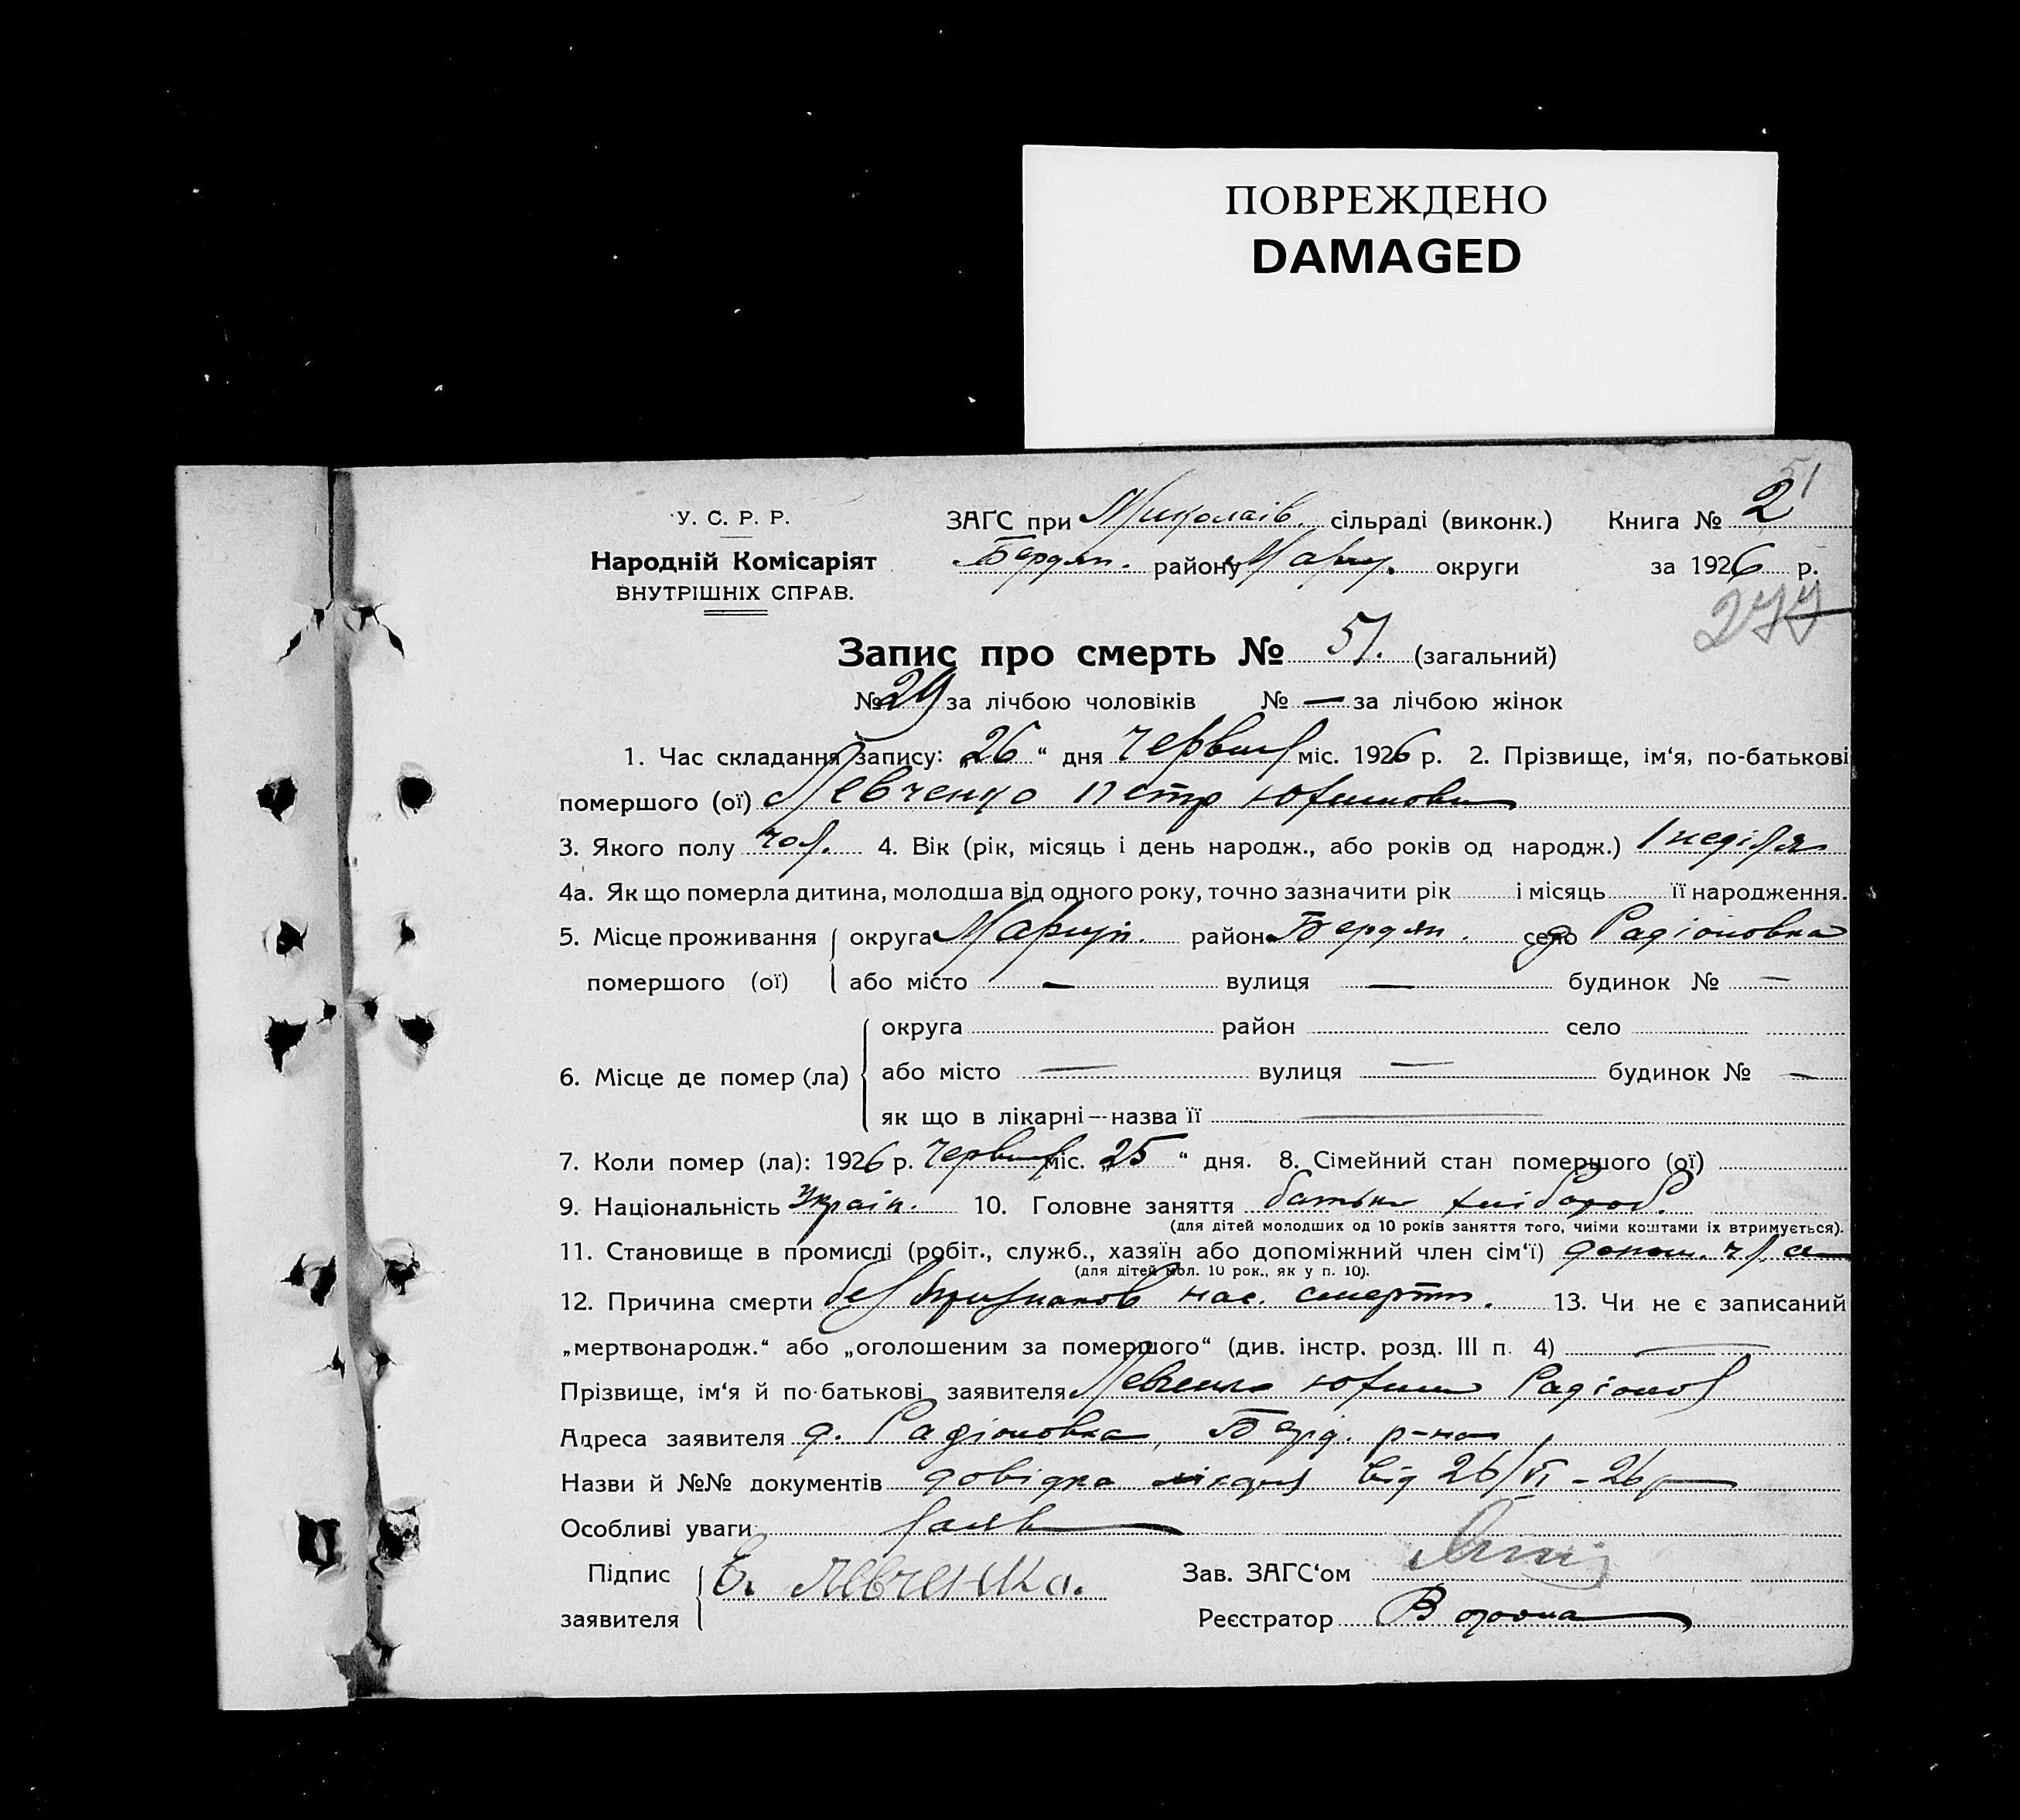 ПОВРЕЖДЕНО
DAMAGED
51
У. С. Р. Р.
Народній Комісаріят
ВНУТРІШНІХ СПРАВ.
ЗАГС при Миколаів. сільраді (виконк.) Книга № 2
Бердян. району Маріу. округи за 1926 р.
277
Запис про смерть № 51. (загальний)
№ 29 за лічбою чоловіків № — за лічбою жінок
1. Час складання запису: „26“ дня червня міс. 1926 р. 2. Прізвище, ім‘я, по-батькові
помершого (ої) Левченко Петр Юхимович
3. Якого полу чол. 4. Вік (рік, місяць і день народж., або років од народж.) 1 неділя
4а. Як що померла дитина, молодша від одного року, точно зазначити рік і місяць її народження.
5. Місце проживання округа Маріуп. район Бердян. село д. Радіоновка
помершого (ої) або місто — вулиця — будинок № —
округа район село
6. Місце де помер (ла) або місто — вулиця — будинок № —
як що в лікарні—назва її —
7. Коли помер (ла): 1926 р. червня міс. „25“ дня. 8. Сімейний стан помершого (ої)
9. Національність Україн. 10. Головне заняття батьки хлібороб.
(для дітей молодших од 10 років заняття того, чиіми коштами іх втримується).
11. Становище в промислі (робіт., служб., хазяїн або допоміжний член сім‘ї) допом. чл. см
(для дітей мол. 10 рок., як у п. 10).
12. Причина смерти без признаков нас. смерти. 13. Чи не є записаний
„мертвонародж.“ або „оголошеним за помершого“ (див. інстр. розд. III п. 4) —
Прізвище, ім‘я й по-батькові заявителя Левченко Юхим Радіонов
Адреса заявителя д. Радіоновка, Берд. р-на
Назви й №№ документів довідка від 26/VI - 26 р
Особливі уваги
Підпис Е. Левченка. Зав. ЗАГС‘ом
заявителя Реєстратор Ворона